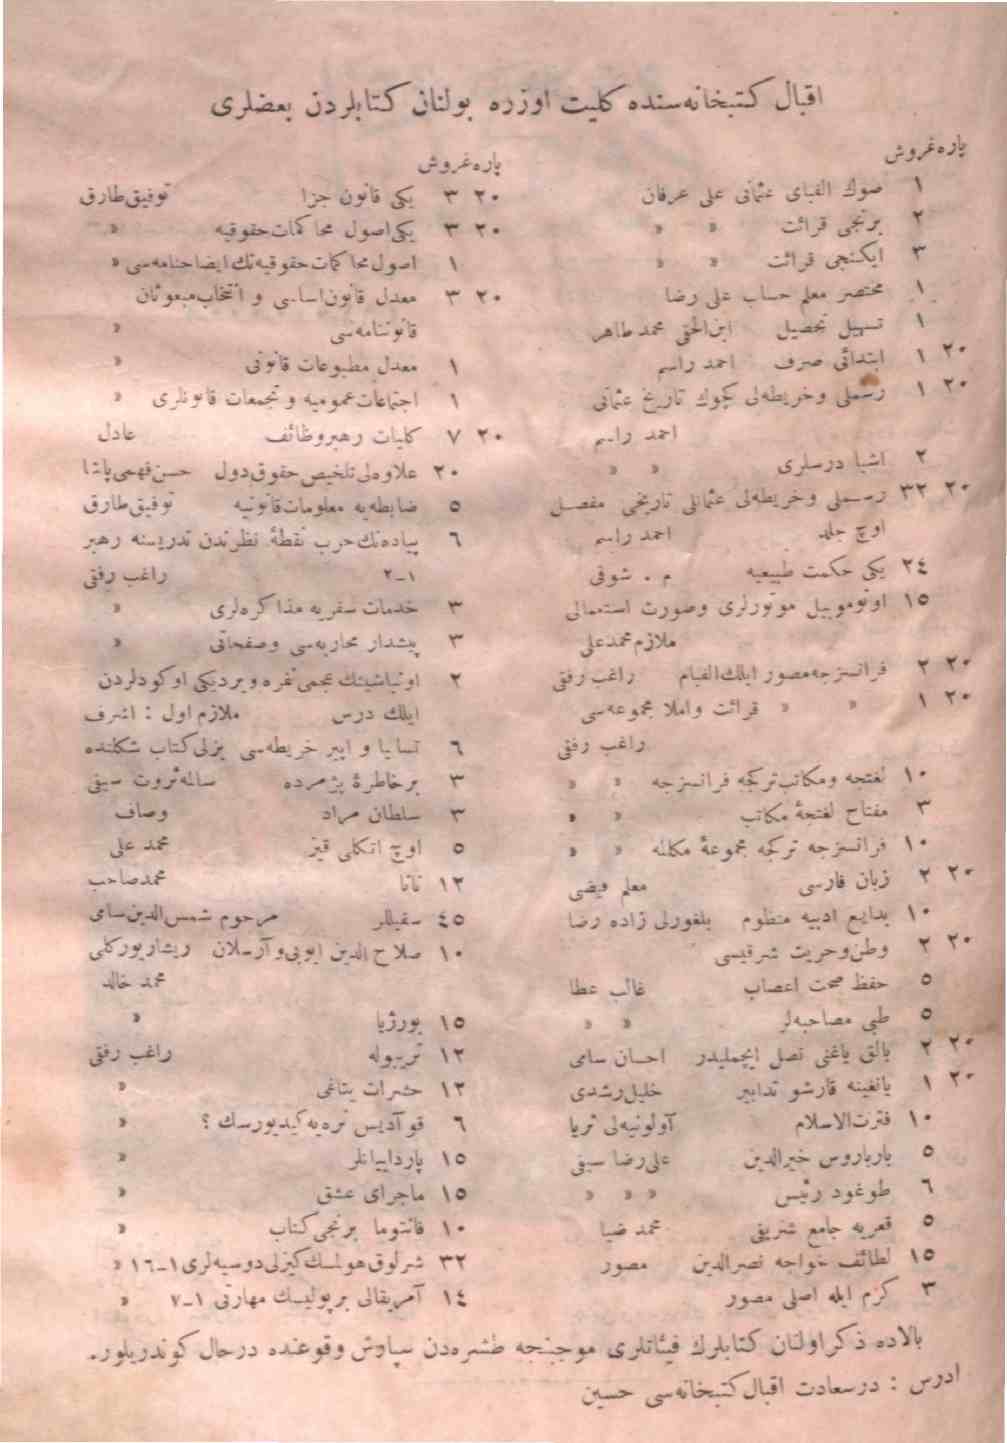 اقبال كتبخانه‌سنده كليت اوزره بولنان كتابلردن بعضلری
پاره غروش
١ صوك الفبای عثمانی علی عرفان
٢ برنجی قرائت » »
٣ ايكنجی قرائت » »
١ مختصر معلم حساب علی رضا
١ تسهيل تحصيل ابن‌الحقی محمد طاهر
٢٠ ١ ابتدائی صرف احمد راسم
٢٠ ١ رسملی وخريطه‌لی كچوك تاريخ عثمانی
احمد راسم
٢ اشيا درسلری » »
٢٠ ٣٢ رسملی وخريطه‌لی عثمانلی تاريخی مفصل
اوچ جلد احمد راسم
٢٤ يكی حكمت طبيعيه م . شوقی
١٥ اوتوموبيل موتورلری وصورت استعمالی
ملازم محمدعلی
٢٠ ٢ فرانسزجه مصور ايلك الفبام راغب رفقی
٢٠ ١ » » قرائت واملا مجموعه‌سی
راغب رفقی
١٠ لغتجه ومكاتب تركجه فرانسزجه » »
٣ مفتاح لغتجۀ مكاتب » »
١٠ فرانسزجه تركجه مجموعۀ مكالمه » »
٢٠ ٢ زبان فارسی معلم فيضی
١٠ بدايع ادبيه منظوم بلغورلی زاده رضا
٢٠ ٢ وطن وحريت شرقيسی
٥ حفظ صحت اعصاب غالب عطا
٥ طبی مصاحبه‌لر » »
٢٠ ٢ بالق ياغنی نصل ايچمليدر احسان سامی
٢٠ ١ يانغينه قارشو تدابير خليل رشدی
١٠ فترت الاسلام آولونيه‌لی ثريا
٥ بارباروس خيرالدين علی رضا سيفی
٦ طوغود رئيس » » »
٥ قعريه جامع شريفی محمد ضيا
١٥ لطائف خواجه نصرالدين مصور
٣ كرم ايله اصلی مصور
پاره غروش
٢٠ ٣ يكی قانون جزا توفيق طارق
٢٠ ٣ يكی اصول محاكمات حقوقيه »
١ اصول محاكمات حقوقيه‌نك ايضاحنامه‌سی »
٢٠ ٣ معدل قانون اساسی و انتخاب مبعوثان
قانوننامه‌سی »
١ معدل مطبوعات قانونی »
١ اجتماعات عموميه و تجمعات قانونلری »
٢٠ ٧ كليات رهبر وظائف عادل
٢٠ علاوه‌لی تلخيص حقوق دول حسن فهمی پاشا
٥ ضابطه‌يه معلومات قانونيه توفيق طارق
٦ پياده‌نك حرب نقطۀ نظرندن تدريسنه رهبر
١–٢ راغب رفقی
٣ خدمات سفريه مذاكره‌لری »
٣ پيشدار محاربه‌سی وصفحاتی »
٢ اونباشينك عجمی نفره ويرديكی اوكودلردن
ايلك درس ملازم اول : اشرف
٦ تساليا و اپير خريطه‌سی بزلی كتاب شكلنده
٣ بر خاطرۀ پژمرده سالمه ثروت سيفی
٣ سلطان مراد وصاف
٥ اوچ اتكلی قيز محمد علی
١٢ نانا محمد صاحب
٤٥ سفيللر مرحوم شمس‌الدين سامی
١٠ صلاح الدين ايوبی و آرسلان ريشار يوركلی
محمد خالد
١٥ بورژيا »
١٢ تريبوله راغب رفقی
١٢ حشرات يتاغی »
٦ قوآديس نره‌يه كيديورسك ؟ »
١٥ پاردايانلر »
١٥ ماجرای عشق »
١٠ فانتوما برنجی كتاب »
٣٢ شرلوق هولمسك كيزلی دوسيه‌لری ١–١٦ »
١٤ آمريقالی بر پوليسك مهارتی ١–٧ »
بالاده ذكر اولنان كتابلرك فيئاتلری موجبنجه طشره‌دن سپارش وقوعنده درحال كوندريلور.
ادرس : درسعادت اقبال كتبخانه‌سی حسين